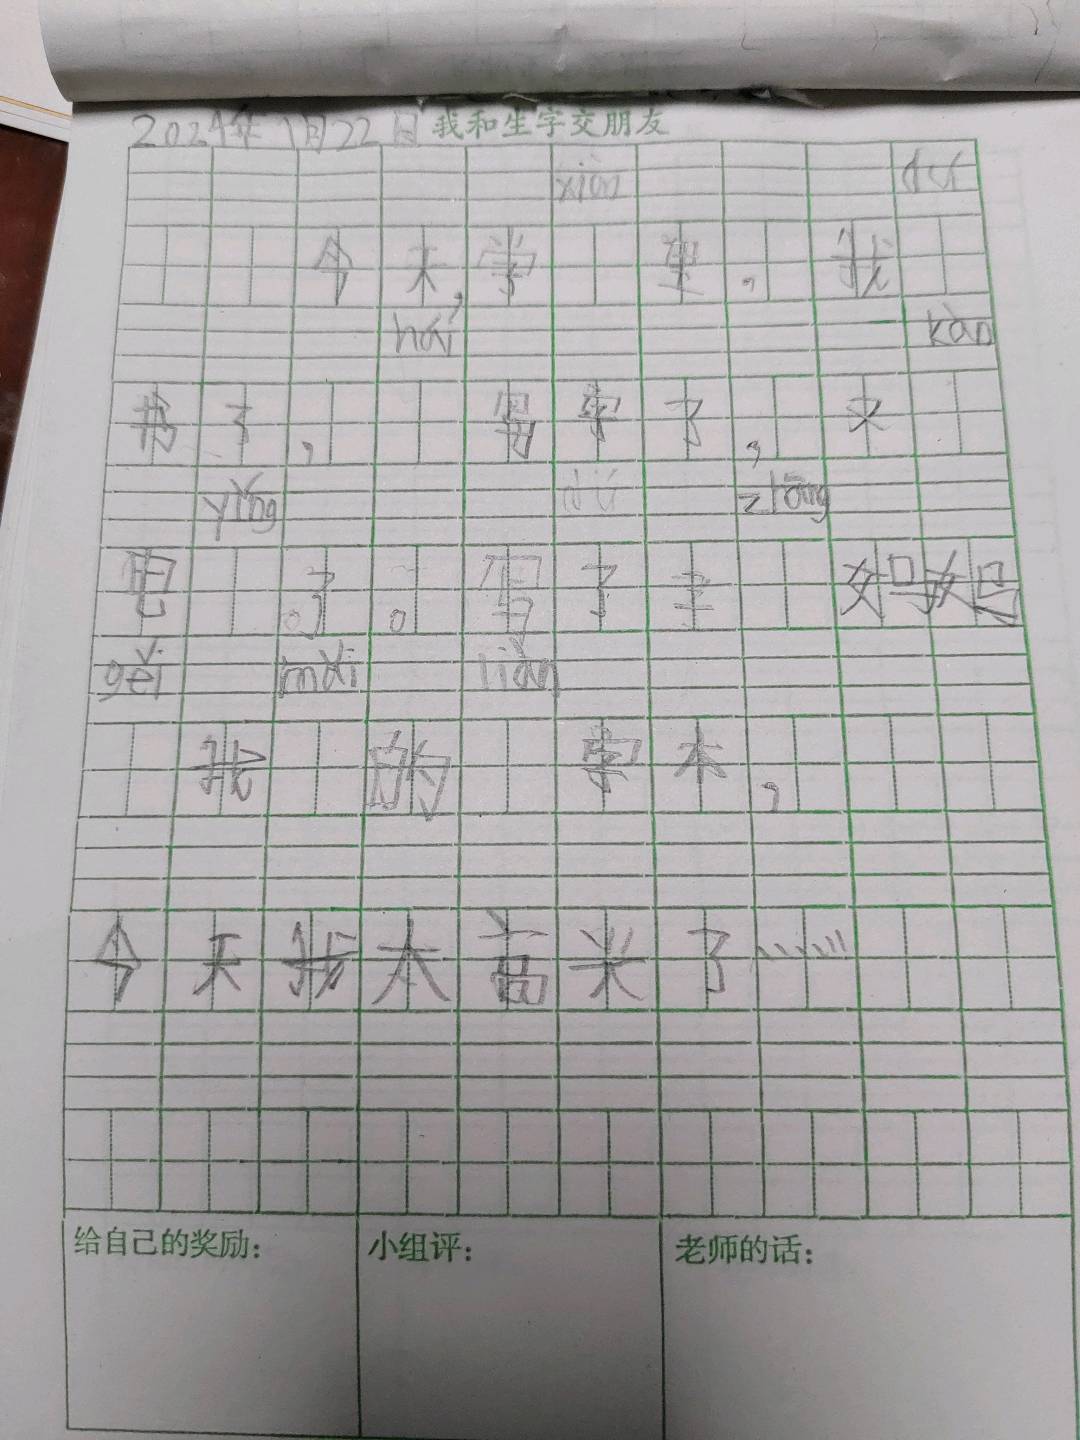 2024年1月22日 我和生字交朋友
xiào
今天,学 里,我
hái kàn
书了, 写字了,来
yǐng zhōng
电 了。写了 妈妈
gěi mǎi liàn
我 的 字本,
今天我太高兴了……
给自己的奖励: 小组评: 老师的话: